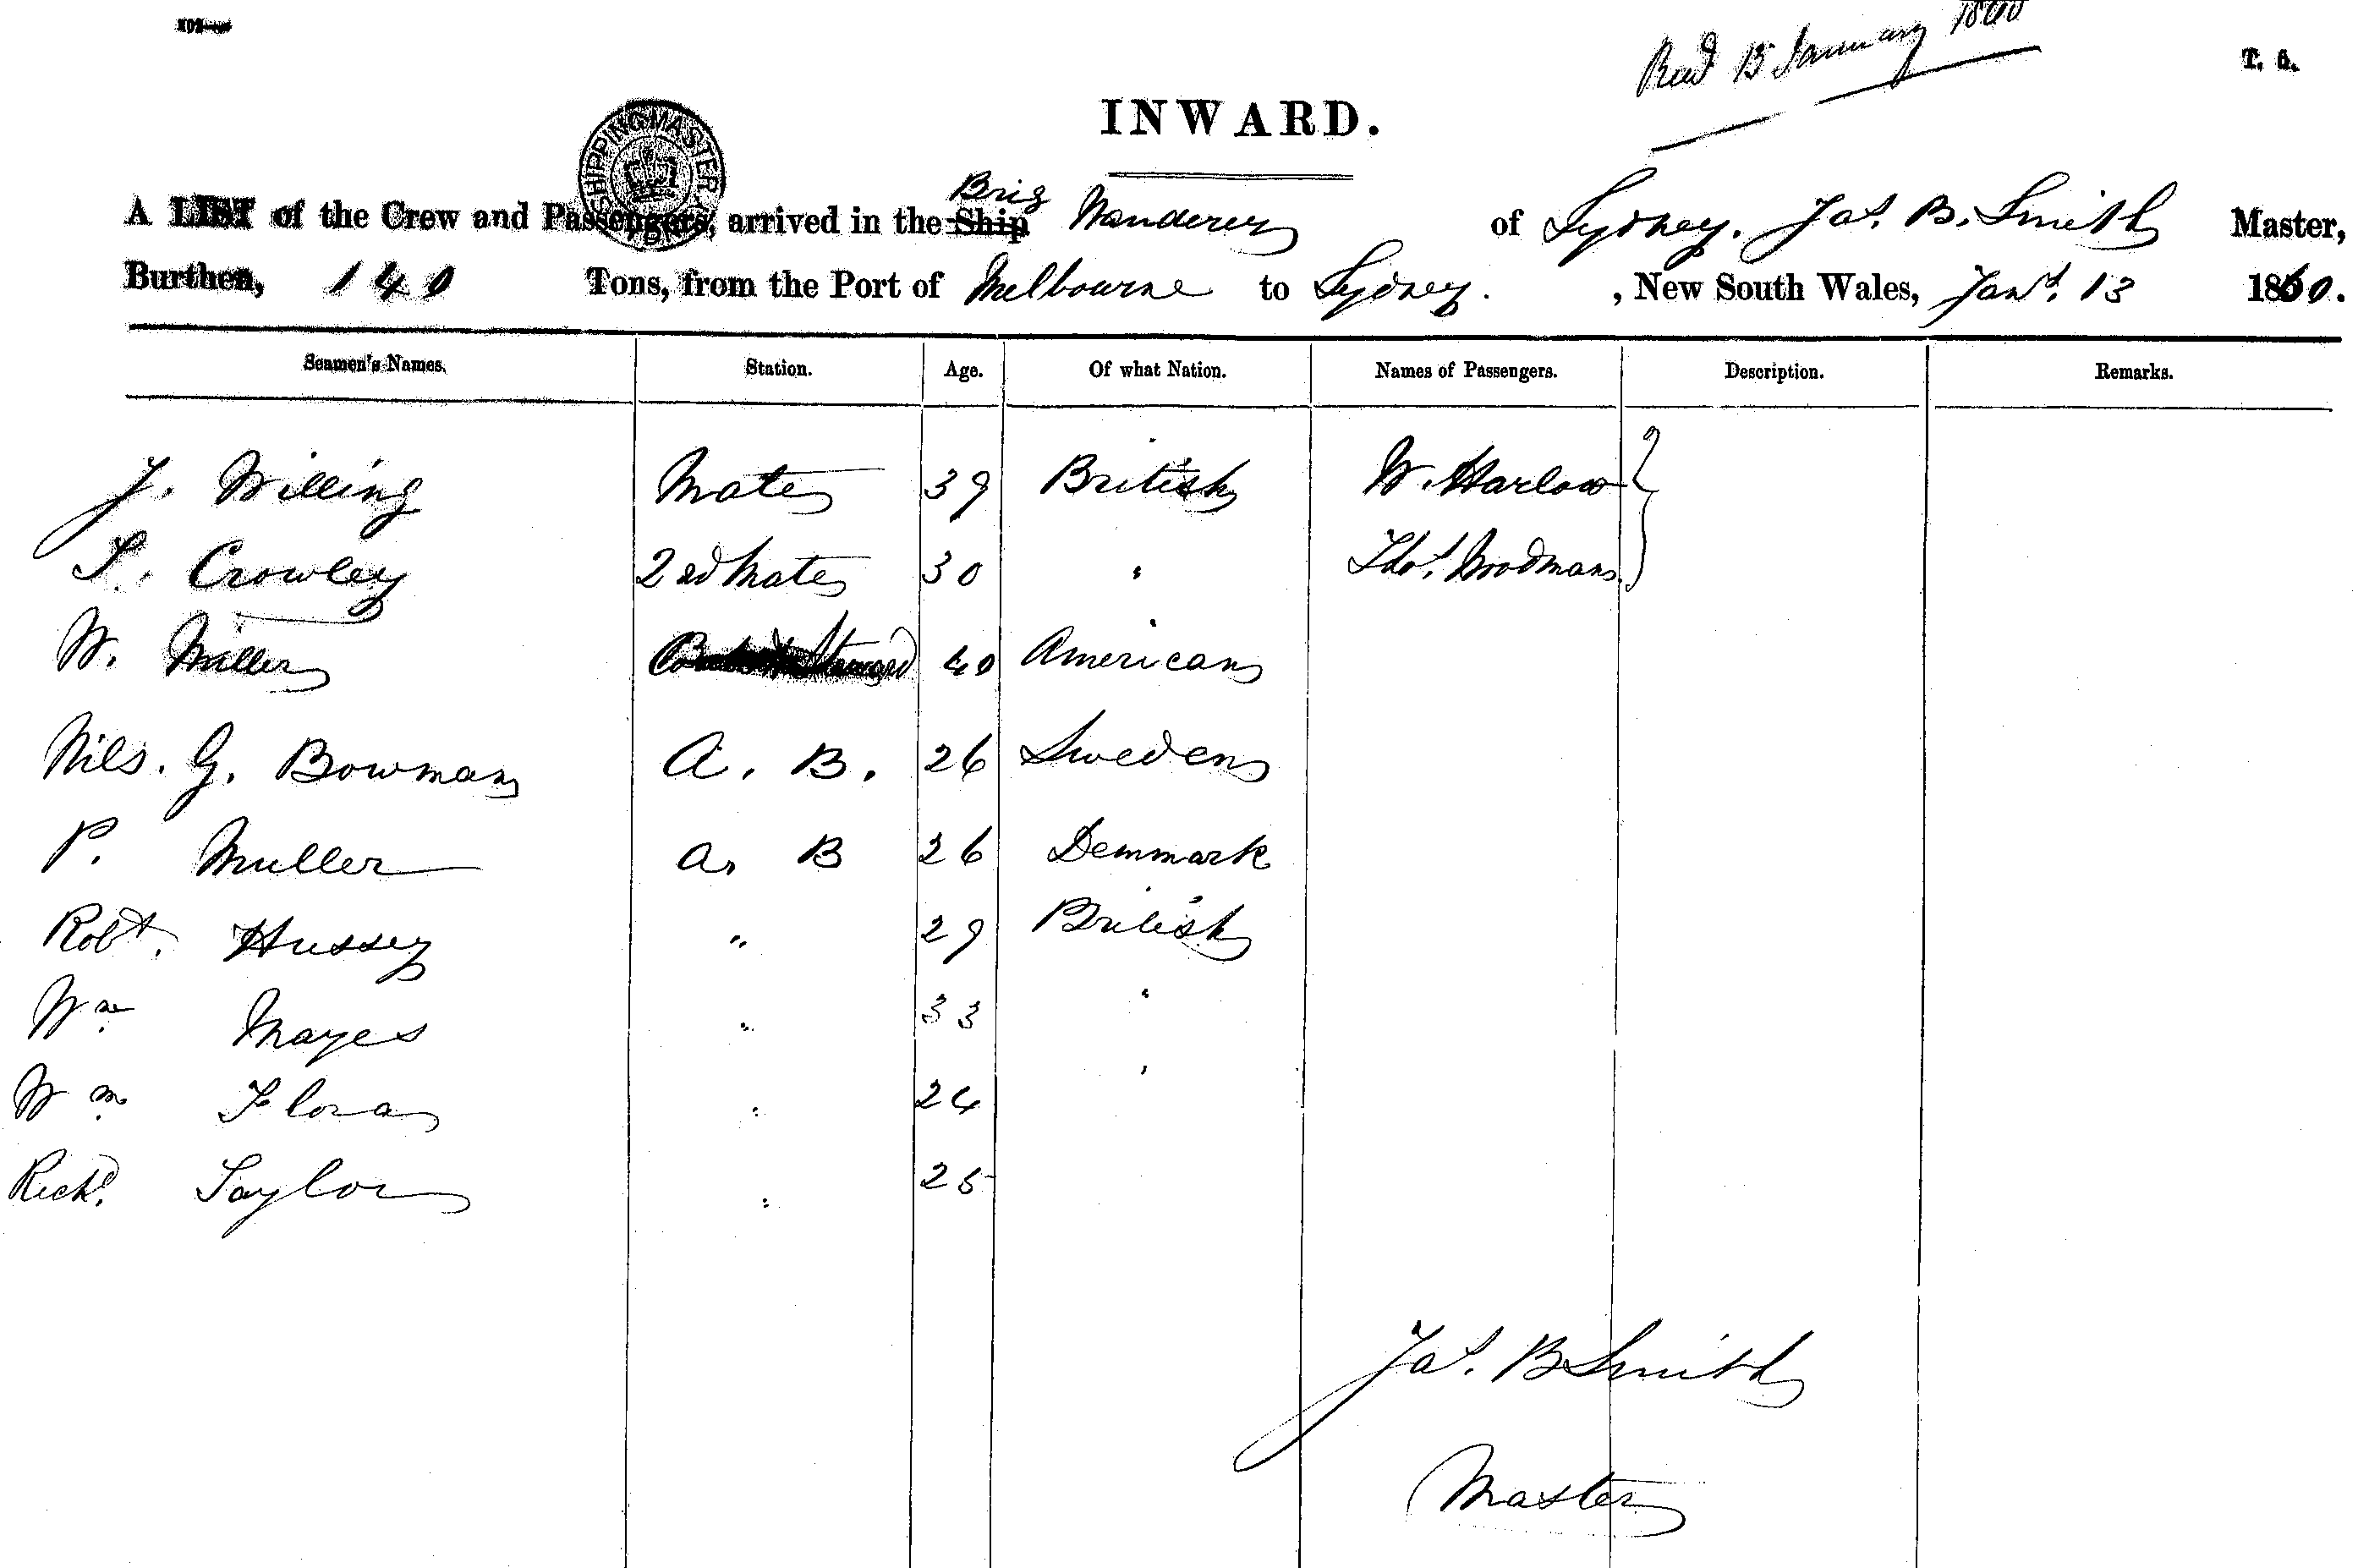 Recd 13 January 1860
T. 5.
INWARD.
SHIPPING MASTER
A LIST of the Crew and Passengers, arrived in the Ship Brig Wanderer of Sydney. Jas. B. Smith Master,
Burthen, 140 Tons, from the Port of Melbourne to Sydney. , New South Wales, Jany. 13 1860.
Seamen's Names. Station. Age. Of what Nation. Names of Passengers. Description. Remarks.
J. Willing Mate 39 British W. Harlow
S. Crowley 2nd Mate 30 " Thos. Woodman
W. Miller Steward 40 American
Nils. G. Bowman A. B. 26 Sweden
P. Muller A. B 26 Denmark
Robt. Hussey " 29 British
Wm Mayes " 33 "
Wm Flora " 24 "
Richd. Taylor " 25
Jas. B Smith
Master